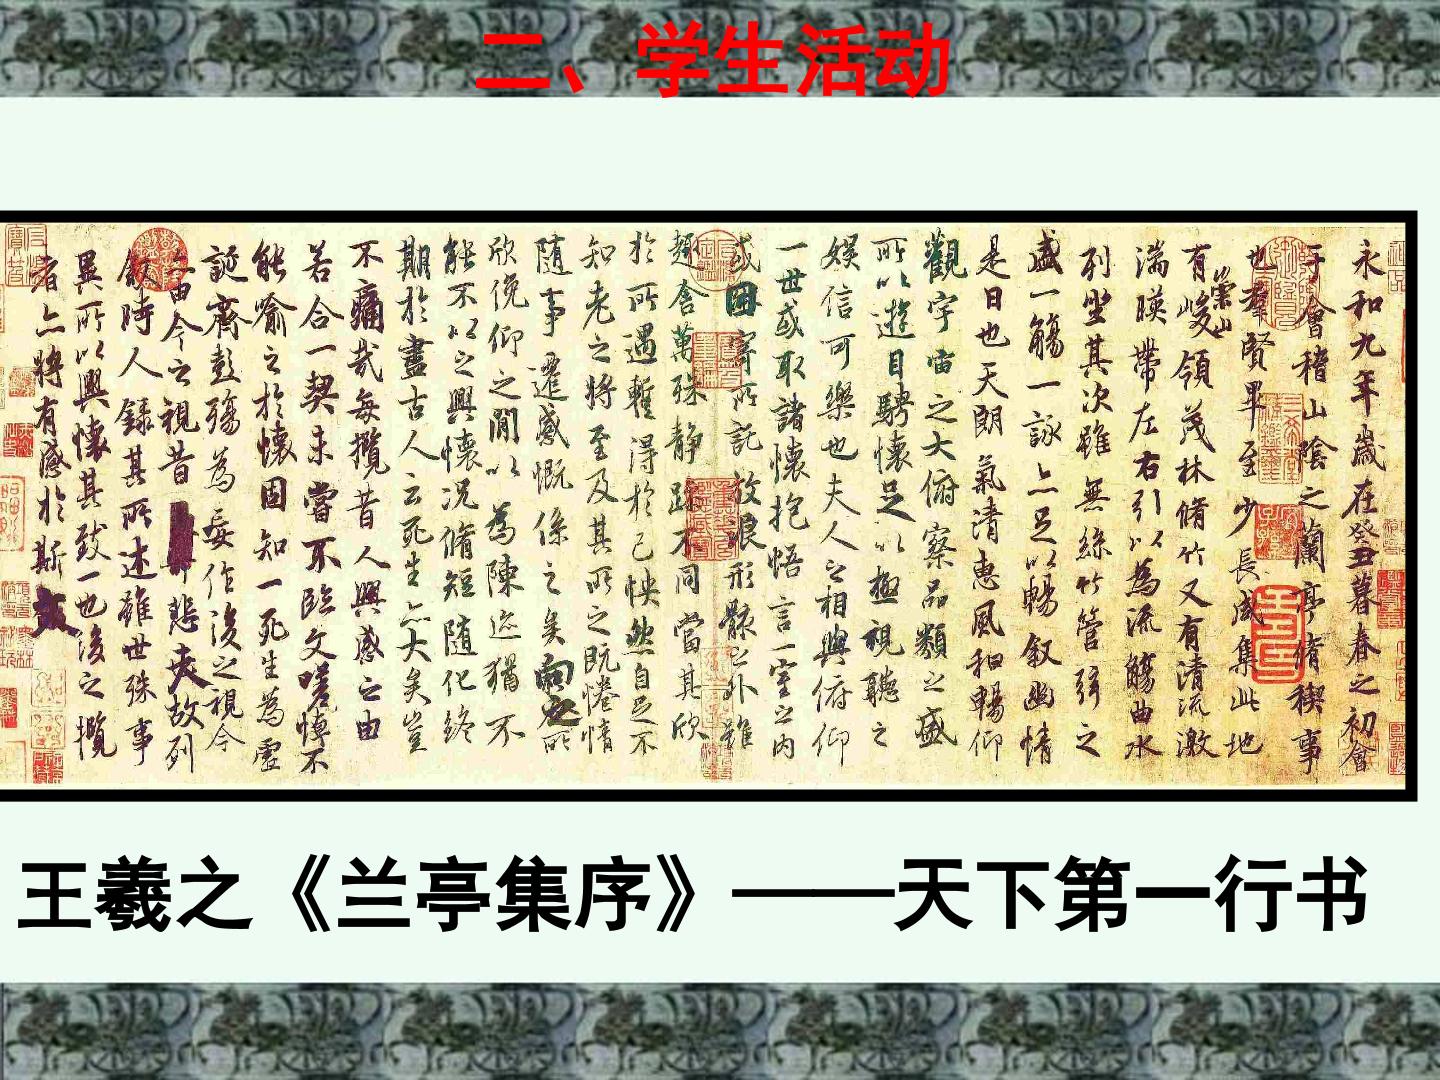 二、学生活动
永和九年歲在癸丑暮春之初會
于會稽山陰之蘭亭脩稧事
也羣賢畢至少長咸集此地
有崇山峻領茂林脩竹又有清流激
湍暎帶左右引以為流觴曲水
列坐其次雖無絲竹管弦之
盛一觴一詠亦足以暢叙幽情
是日也天朗氣清惠風和暢仰
觀宇宙之大俯察品類之盛
所以遊目騁懷足以極視聽之
娛信可樂也夫人之相與俯仰
一世或取諸懷抱悟言一室之內
或因寄所託放浪形骸之外雖
趣舍萬殊静躁不同當其欣
於所遇暫得於己怏然自足不
知老之將至及其所之既惓情
隨事遷感慨係之矣向之所
欣俛仰之間以為陳迹猶不
能不以之興懷況脩短隨化終
期於盡古人云死生亦大矣豈
不痛哉每攬昔人興感之由
若合一契未嘗不臨文嗟悼不
能喻之於懷固知一死生為虛
誕齊彭殤為妄作後之視今
亦由今之視昔悲夫故列
叙時人錄其所述雖世殊事
異所以興懷其致一也後之攬
者亦將有感於斯文
王羲之《兰亭集序》——天下第一行书